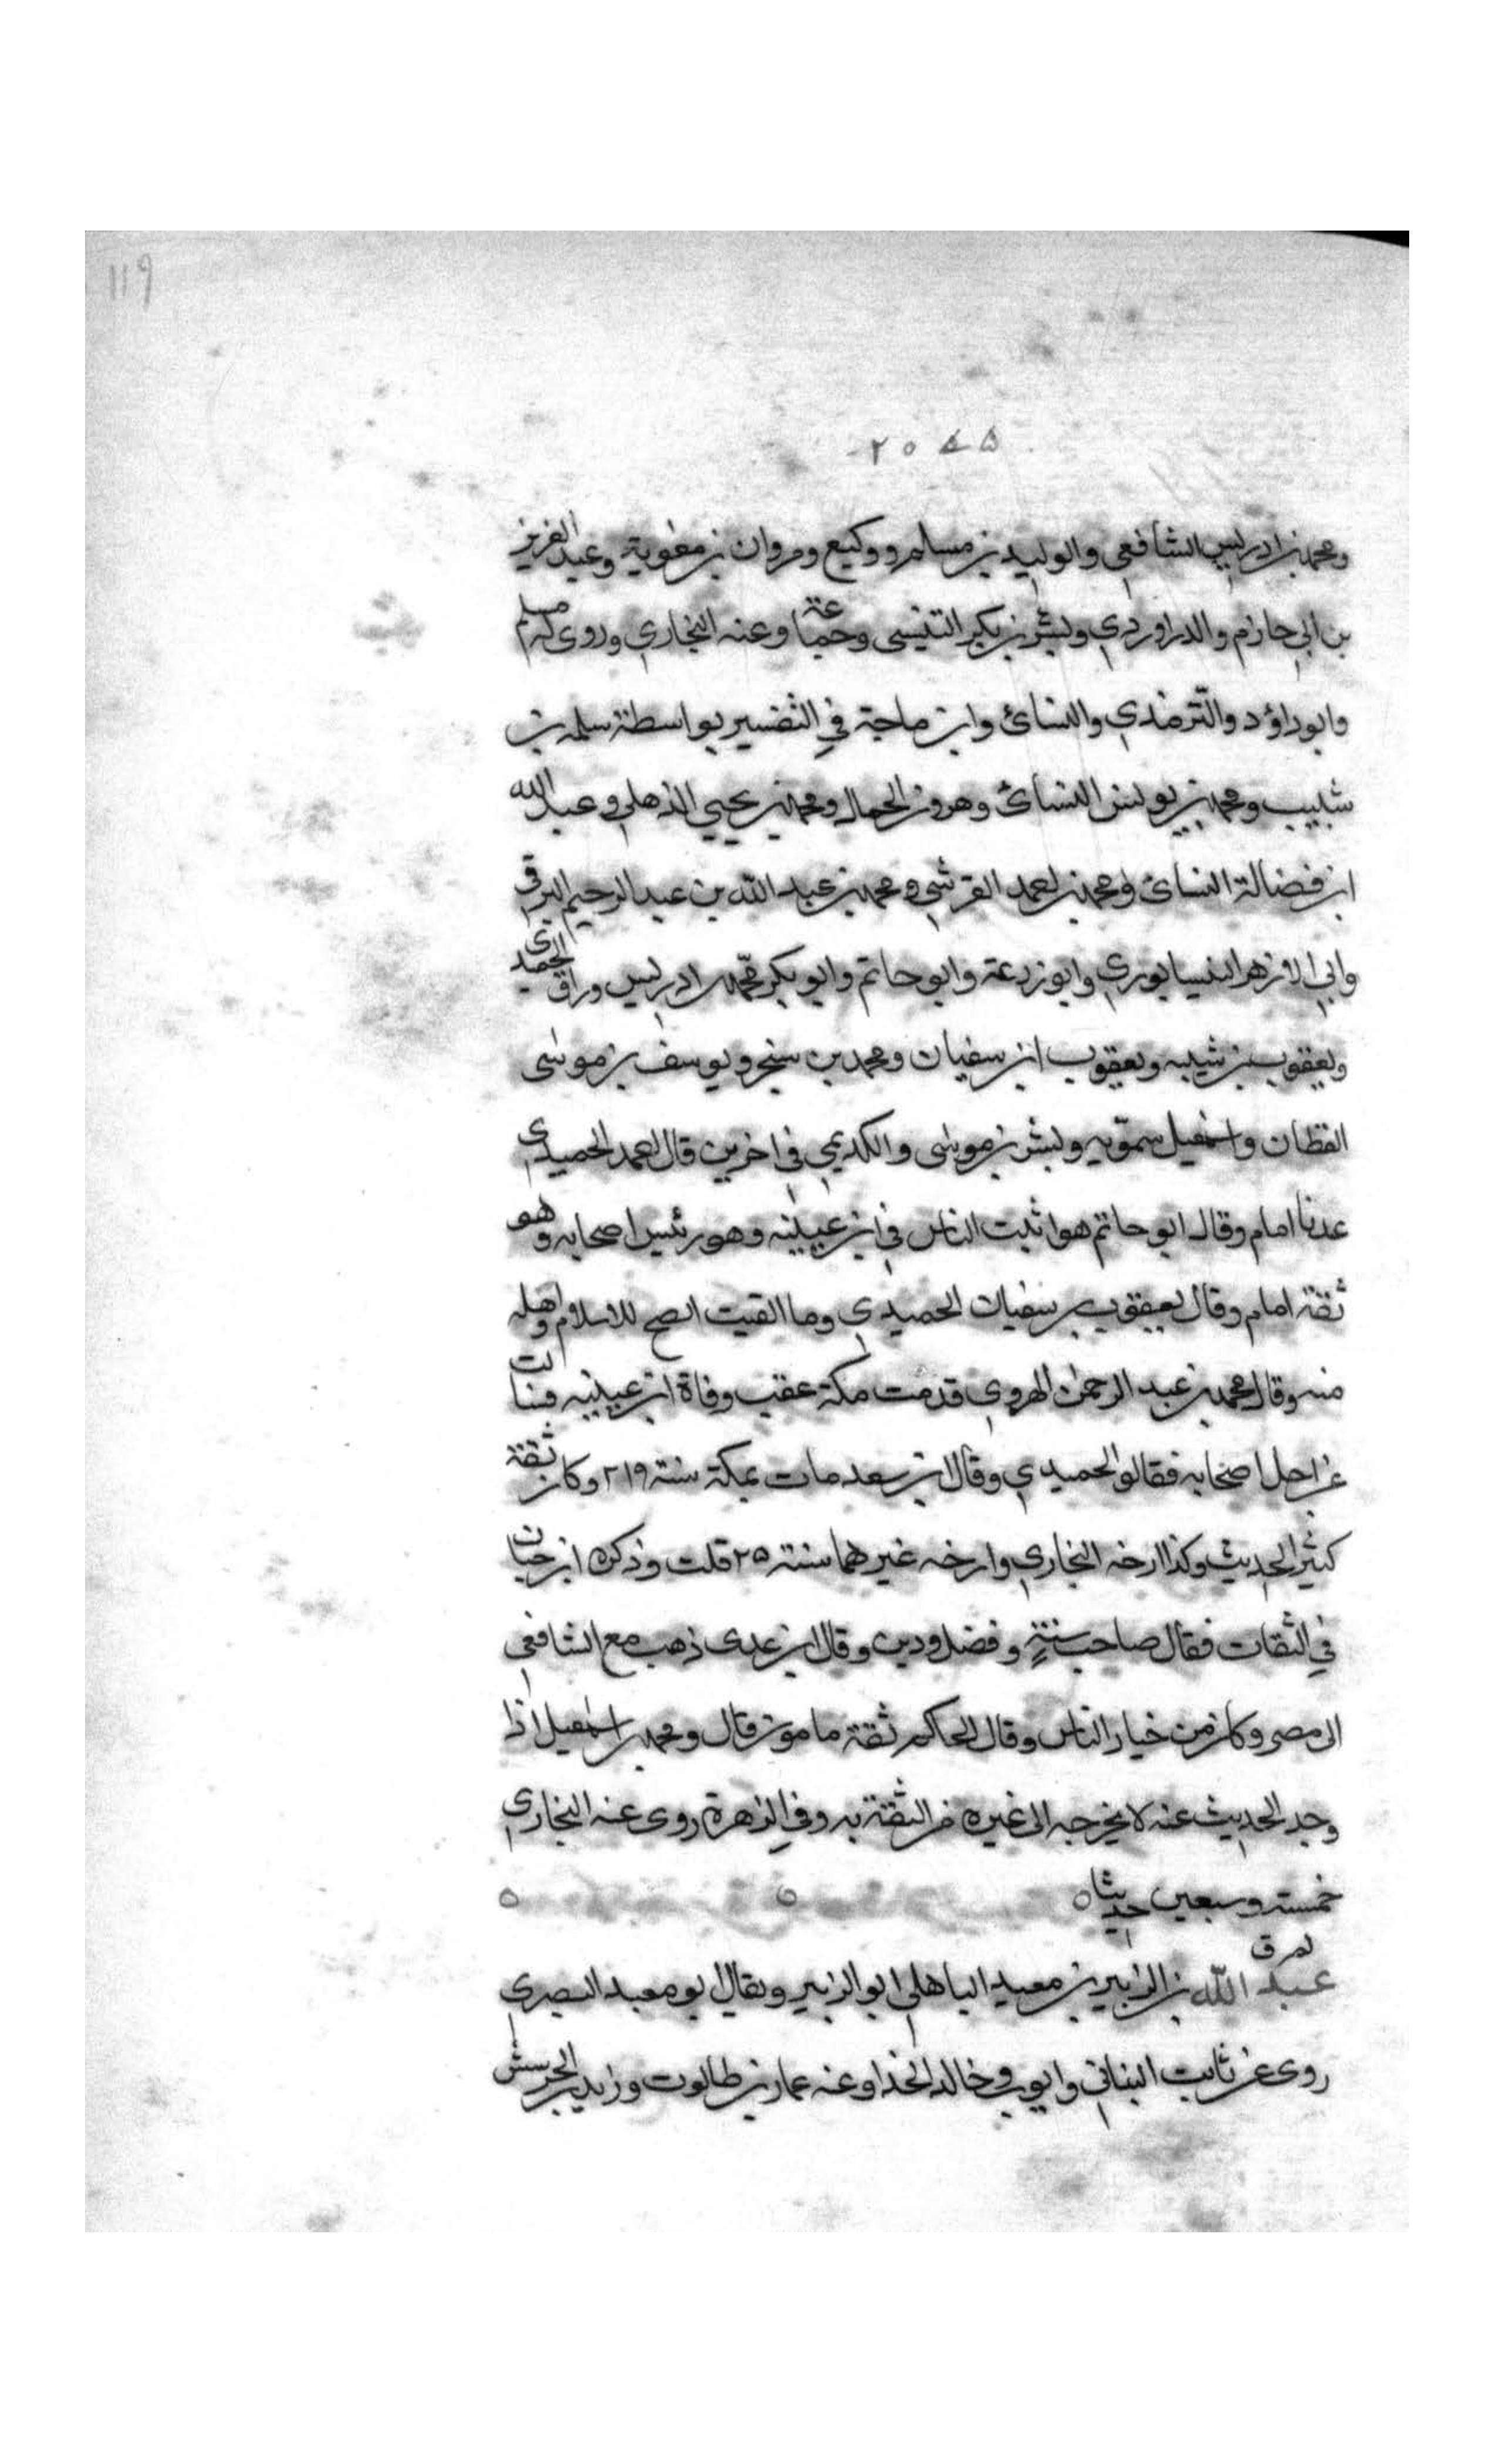 ١١٩
ومحمد بن ادريس الشافعي والوليد بن مسلم ووكيع ومروان بن معوية وعبد العزيز
بن ابي حازم والدراوردي وبشر بن بكر التنيسي وجماعة وعنه البخاري وروى له مسلم
وابو داؤد والترمذي والنسائ وابن ماجة في التفسير بواسطة سلمه بن
شبيب ومحمد بن يونس النسائ وهرون الحمال ومحمد بن يحيي الذهلي وعبد الله
ابن فضالة النسائ ومحمد بن احمد القرشي ومحمد بن عبد الله بن عبد الرحيم البرقي
وابي الازهر النيسابوري وابو زرعة وابو حاتم وابو بكر محمد بن ادريس وراق الحميدي
ويعقوب بن شيبه ويعقوب ابن سفيان ومحمد بن سنجر ويوسف بن موسى
القطان واسمعيل سمويه وبشر بن موسى والكديمي في اخرين قال احمد الحميدي
عدنا امام وقال ابو حاتم هو اثبت الناس في ابن عيينه وهو رئيس اصحابه وهو
ثقة امام وقال يعقوب بن سفيان الحميدي وما القيت انصح للاسلام واهله
منه وقال محمد بن عبد الرحمن الهروي قدمت مكة عقب وفاة ابن عيينه فسالت
عن اجل اصحابه فقالو الحميدي وقال ابن سعد مات بمكة سنة ٢١٩ وكان ثقة
كثير الحديث وكذا ارخه البخاري وارخه غيرهما سنة ٢٥ قلت وذكره ابن حبان
في الثقات فقال صاحب سنة وفضل ودين وقال ابن عدى ذهب مع الشافعي
الى مصر وكان من خيار الناس وقال الحاكم ثقة مامون قال ومحمد بن اسمعيل اذا
وجد الحديث عنه لا يخرجه الى غيره من الثقة به وفي الزهرة روى عنه البخاري
خمسة وسبعين حديثا ٥ ٥ ٥
تمرق
عبد الله بن الزبير بن معبد الباهلي ابو الزبير ويقال ابو معبد البصري
روى عن ثابت البناني وايوب وخالد الحذا وعنه عمار بن طالوت وزيد بن الحرسش